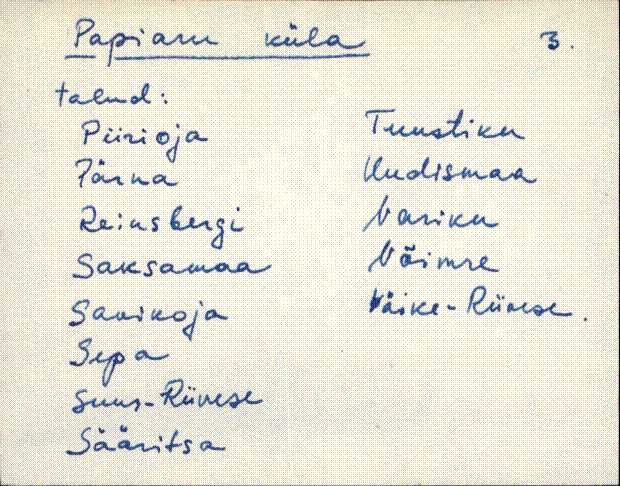 Papiaru küla 3.
talud:
Piirioja
Pärna
Reinsbergi
Saksamaa
Savikoja
Sepa
Suur-Riivese
Sääritsa
Tuustiku
Uudismaa
Variku
Võimre
Väike-Riivese.